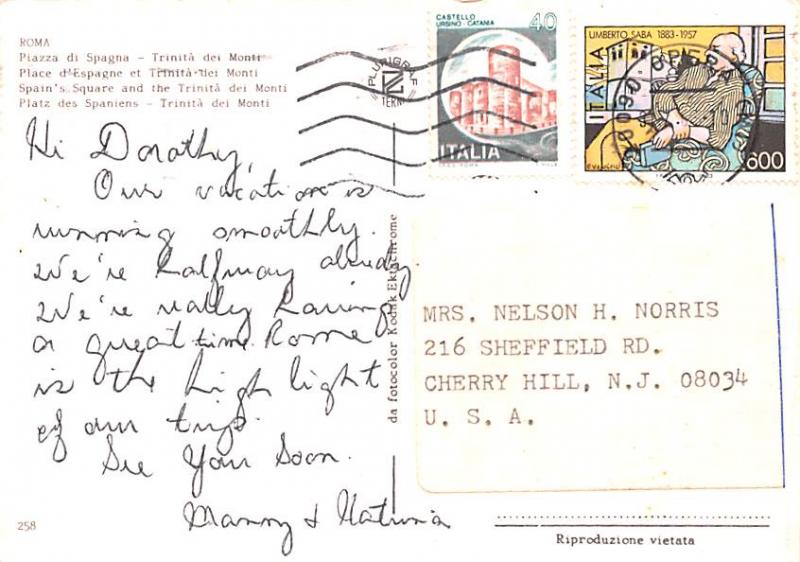 ROMA
Piazza di Spagna - Trinità dei Monti
Place d'Espagne et Trinità dei Monti
Spain's Square and the Trinità dei Monti
Platz des Spaniens - Trinità dei Monti
PLURIGRAF
TERNI
CASTELLO
URSINO - CATANIA
40
ITALIA
UMBERTO SABA 1883-1957
ITALIA
600
Hi Dorothy,
Our vacation is
running smoothly.
We're halfway already.
We're really having
a great time. Rome
is the high light
of our trip.
See You Soon.
Manny &
da fotocolor Kodak Ektachrome
MRS. NELSON H. NORRIS
216 SHEFFIELD RD.
CHERRY HILL, N.J. 08034
U. S. A.
258
Riproduzione vietata